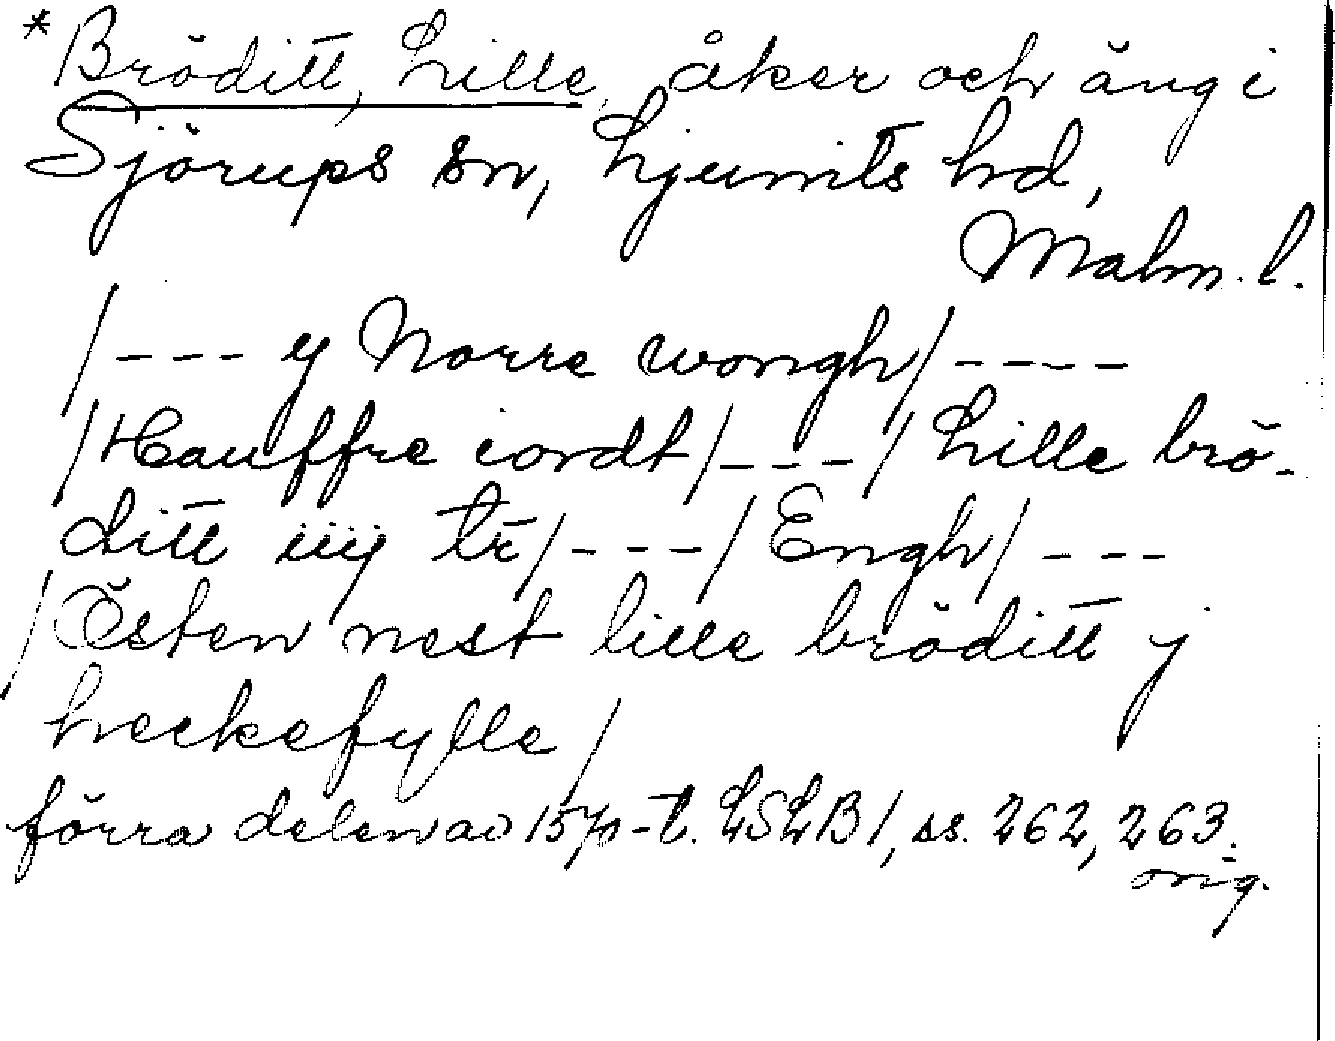 *Bröditt, Lille, åker och äng i
Sjörups sn, Ljunits hd,
Malm. l.
/--- y Norre wongh/----
/Hauffre iordt/---/Lille brö-
ditt iiij tr̄/---/Engh/---
/Östen nest lille bröditt j
heckefylle/
förra delen av 1570-t. LSLB 1, ss. 262, 263.
orig.